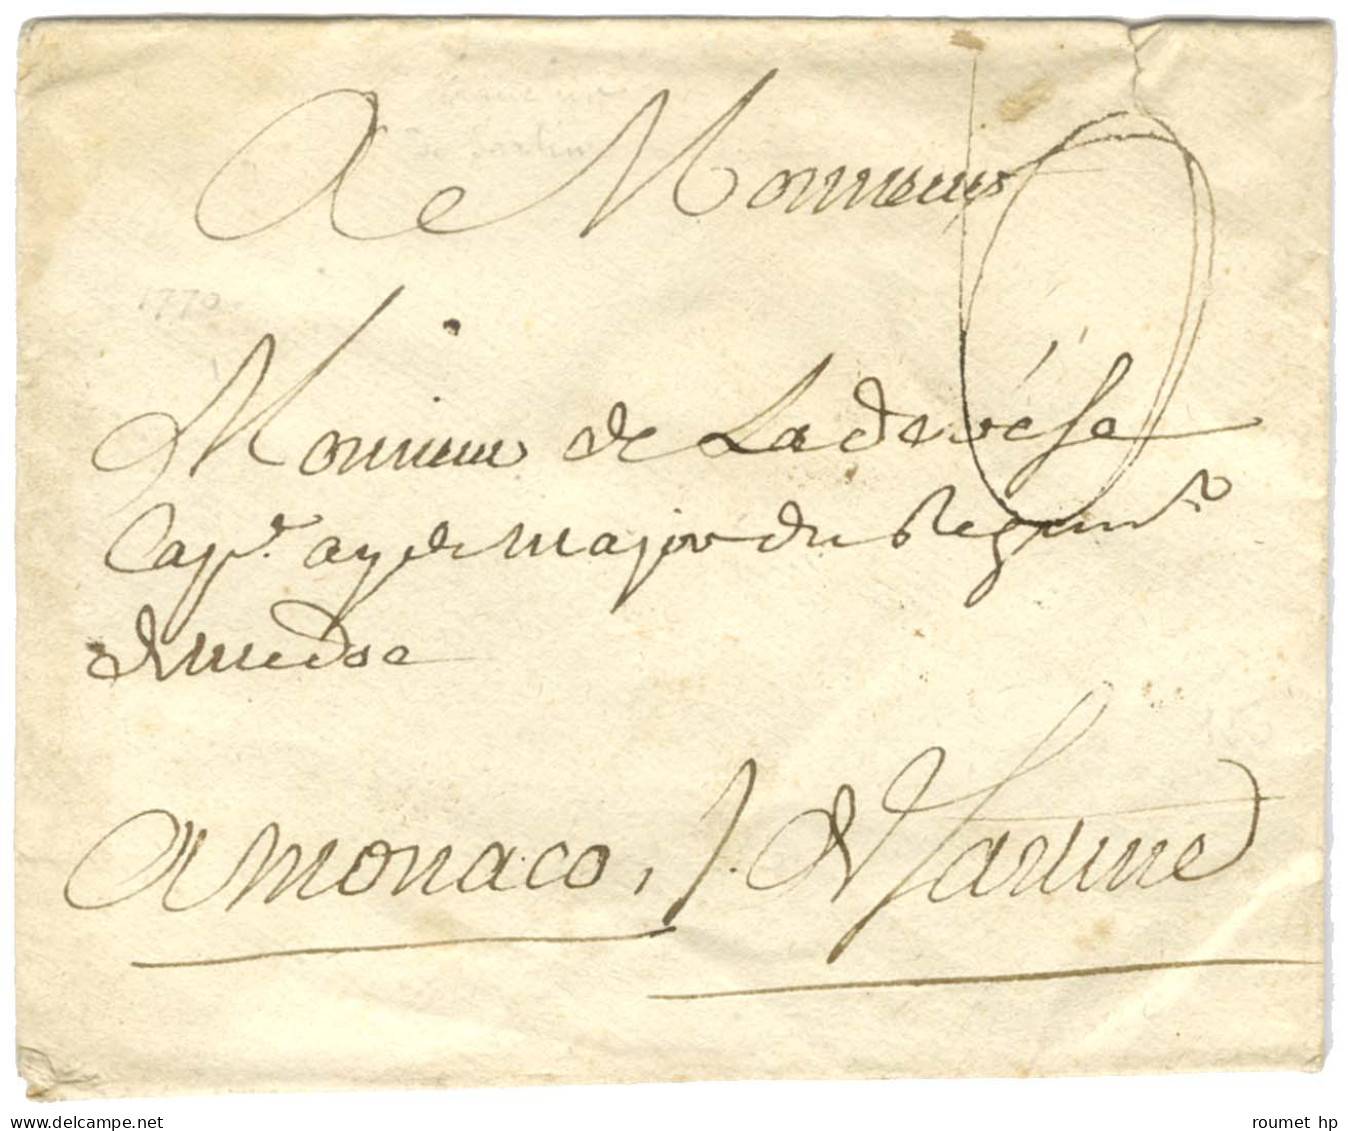 A Monsieur
1770
Monsieur de Ladevése
Cap.e ayde major du Regim.t
de medoc
A monaco, f. de Sartine
www.delcampe.net
roumet hp